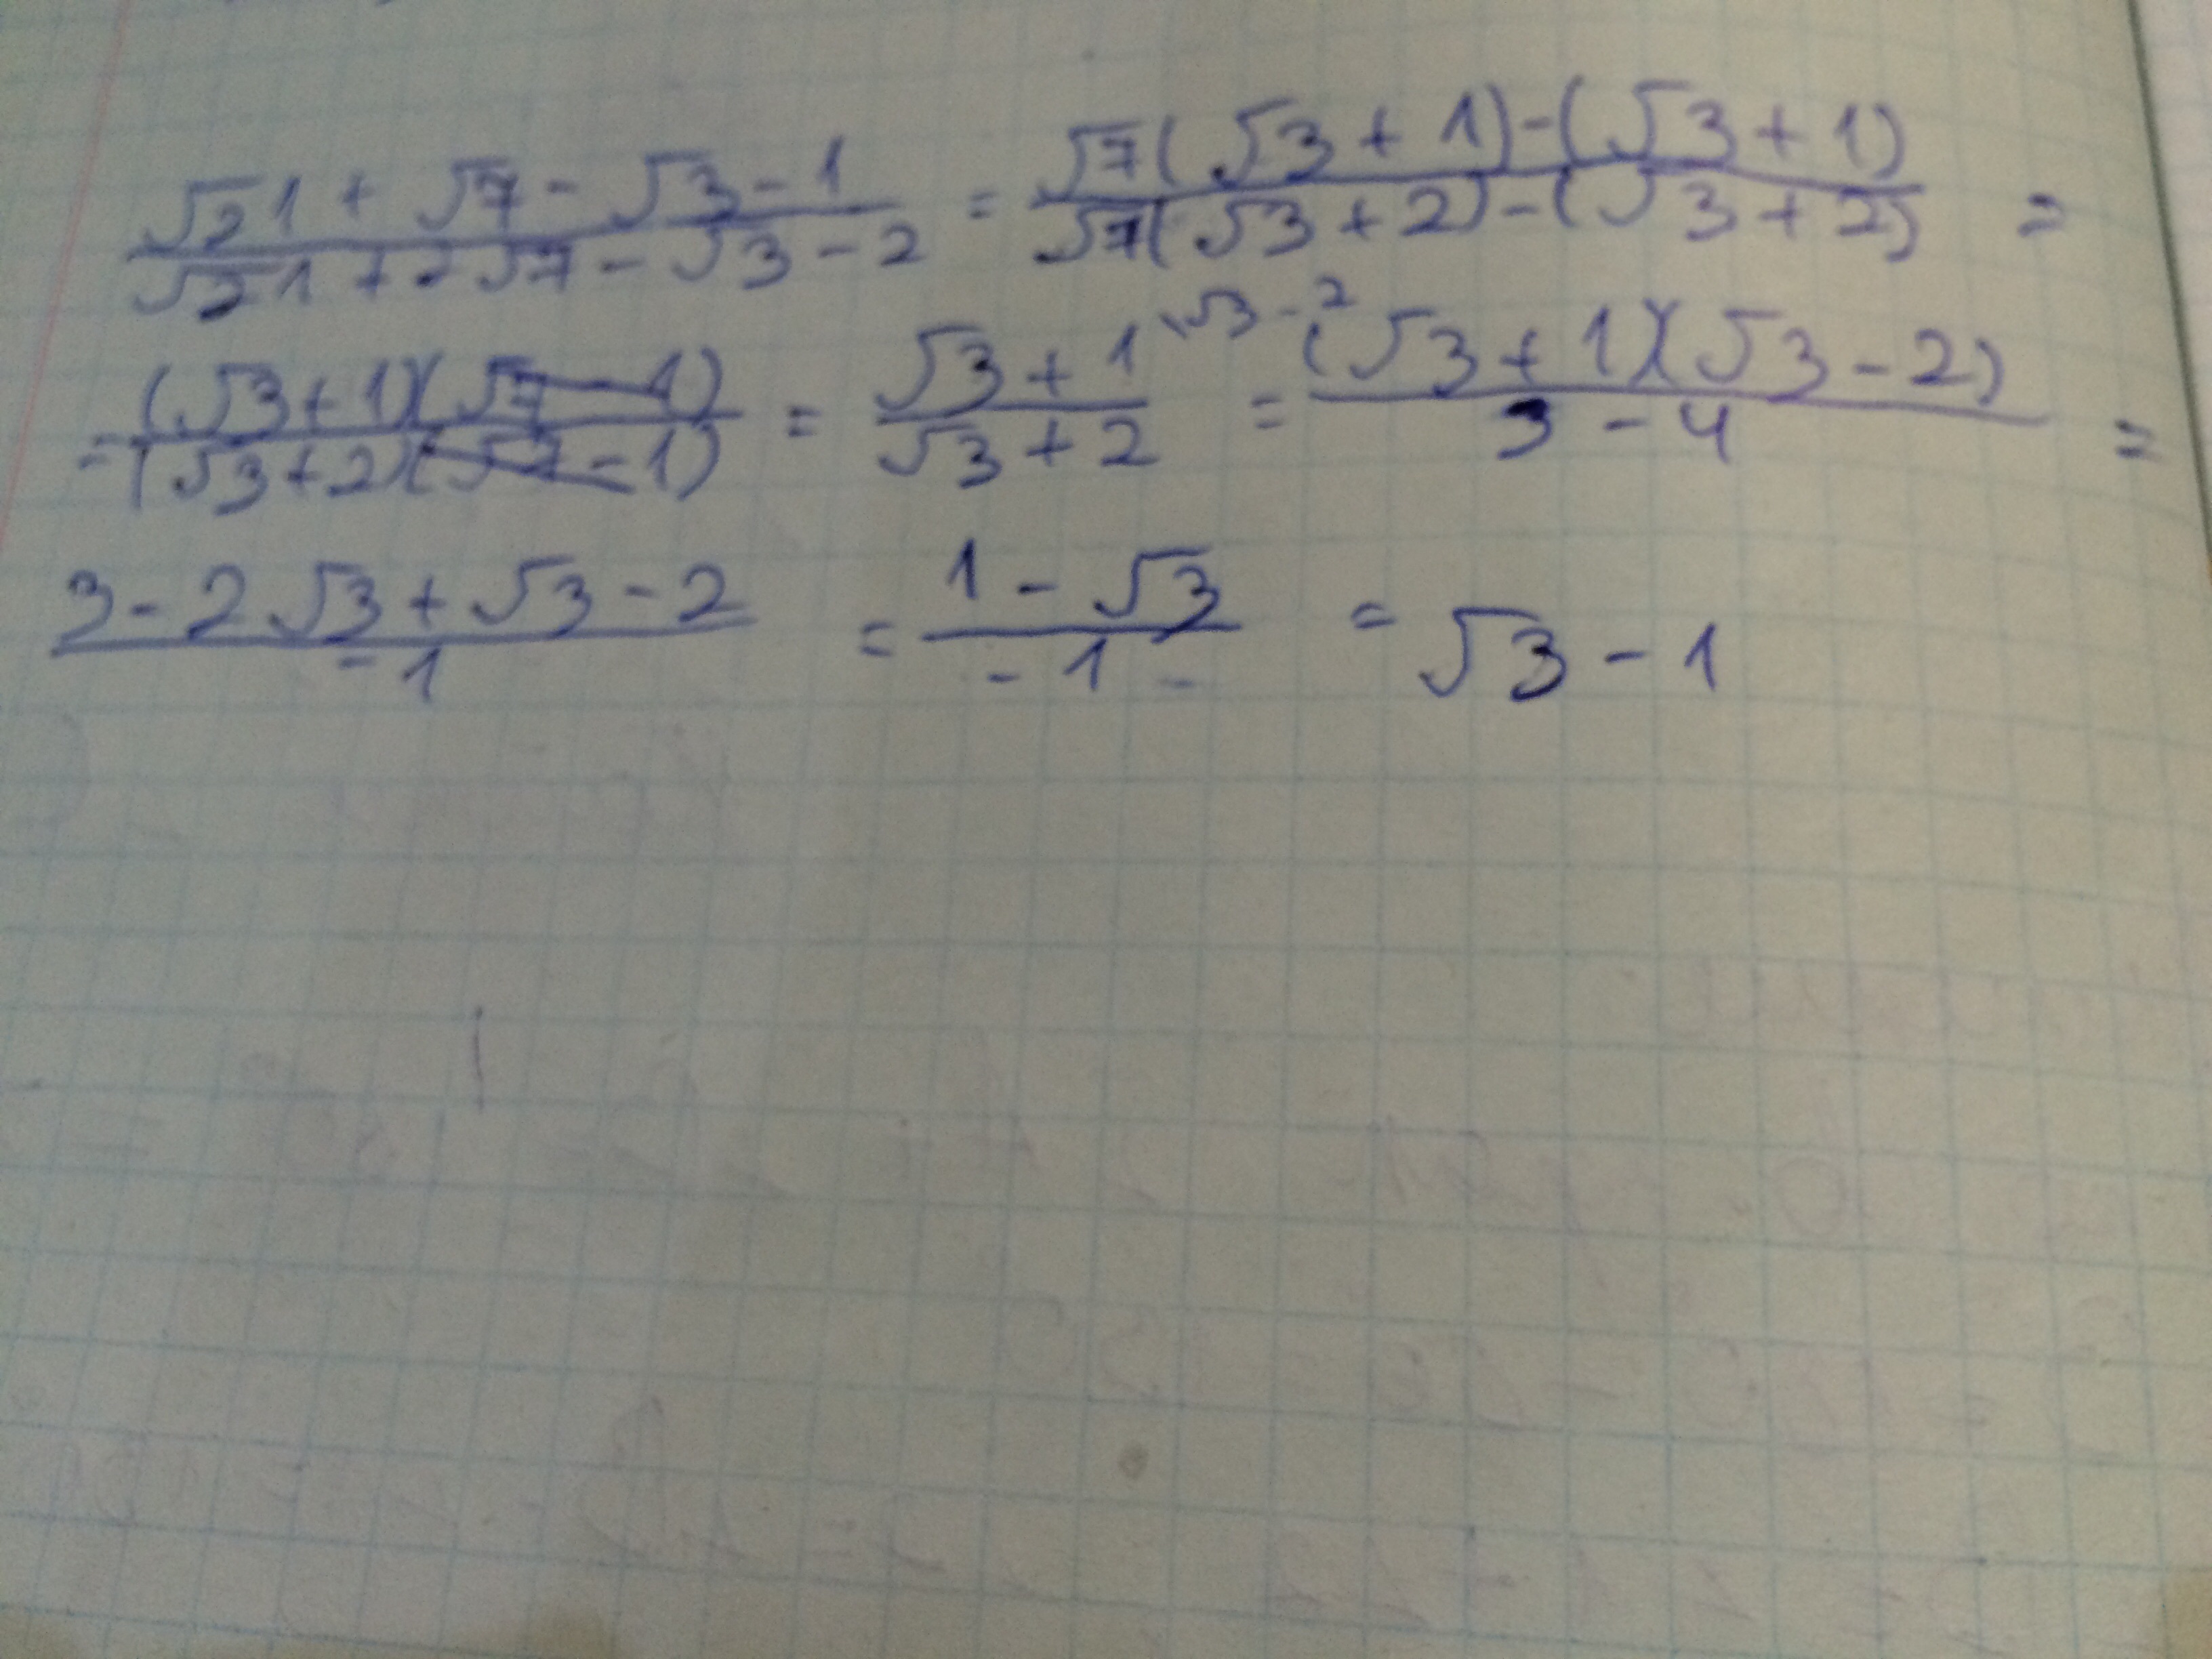 (√21 + √7 - √3 - 1)/(√21 + 2√7 - √3 - 2) = (√7(√3 + 1) - (√3 + 1))/(√7(√3 + 2) - (√3 + 2)) =
= ((√3 + 1)(√7 - 1))/((√3 + 2)(√7 - 1)) = (√3 + 1)/(√3 + 2) \√3 - 2 = ((√3 + 1)(√3 - 2))/(3 - 4) =
(3 - 2√3 + √3 - 2)/(-1) = (1 - √3)/(-1) = √3 - 1